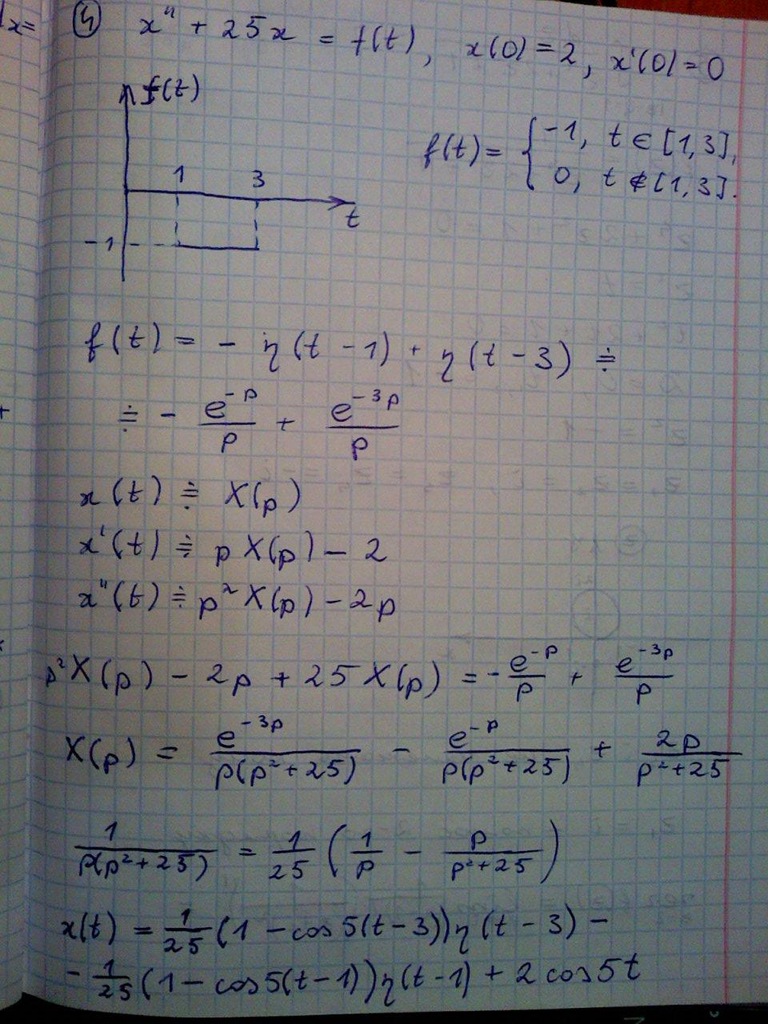 ④ x'' + 25x = f(t), x(0) = 2, x'(0) = 0
f(t)
f(t) = { -1, t ∈ [1, 3],
0, t ∉ [1, 3].
1 3
t
-1
f(t) = - η(t - 1) + η(t - 3) ≑
≑ - e^{-p}/p + e^{-3p}/p
x(t) ≑ X(p)
x'(t) ≑ pX(p) - 2
x''(t) ≑ p²X(p) - 2p
p²X(p) - 2p + 25X(p) = - e^{-p}/p + e^{-3p}/p
X(p) = e^{-3p}/(p(p²+25)) - e^{-p}/(p(p²+25)) + 2p/(p²+25)
1/(p(p²+25)) = 1/25 (1/p - p/(p²+25))
x(t) = 1/25 (1 - cos 5(t-3))η(t-3) -
- 1/25 (1 - cos 5(t-1))η(t-1) + 2 cos 5t